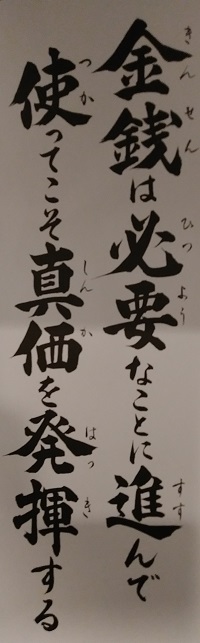 金銭は必要なことに進んで
使ってこそ真価を発揮する
きんせん
ひつよう
すす
つか
しんか
はっき